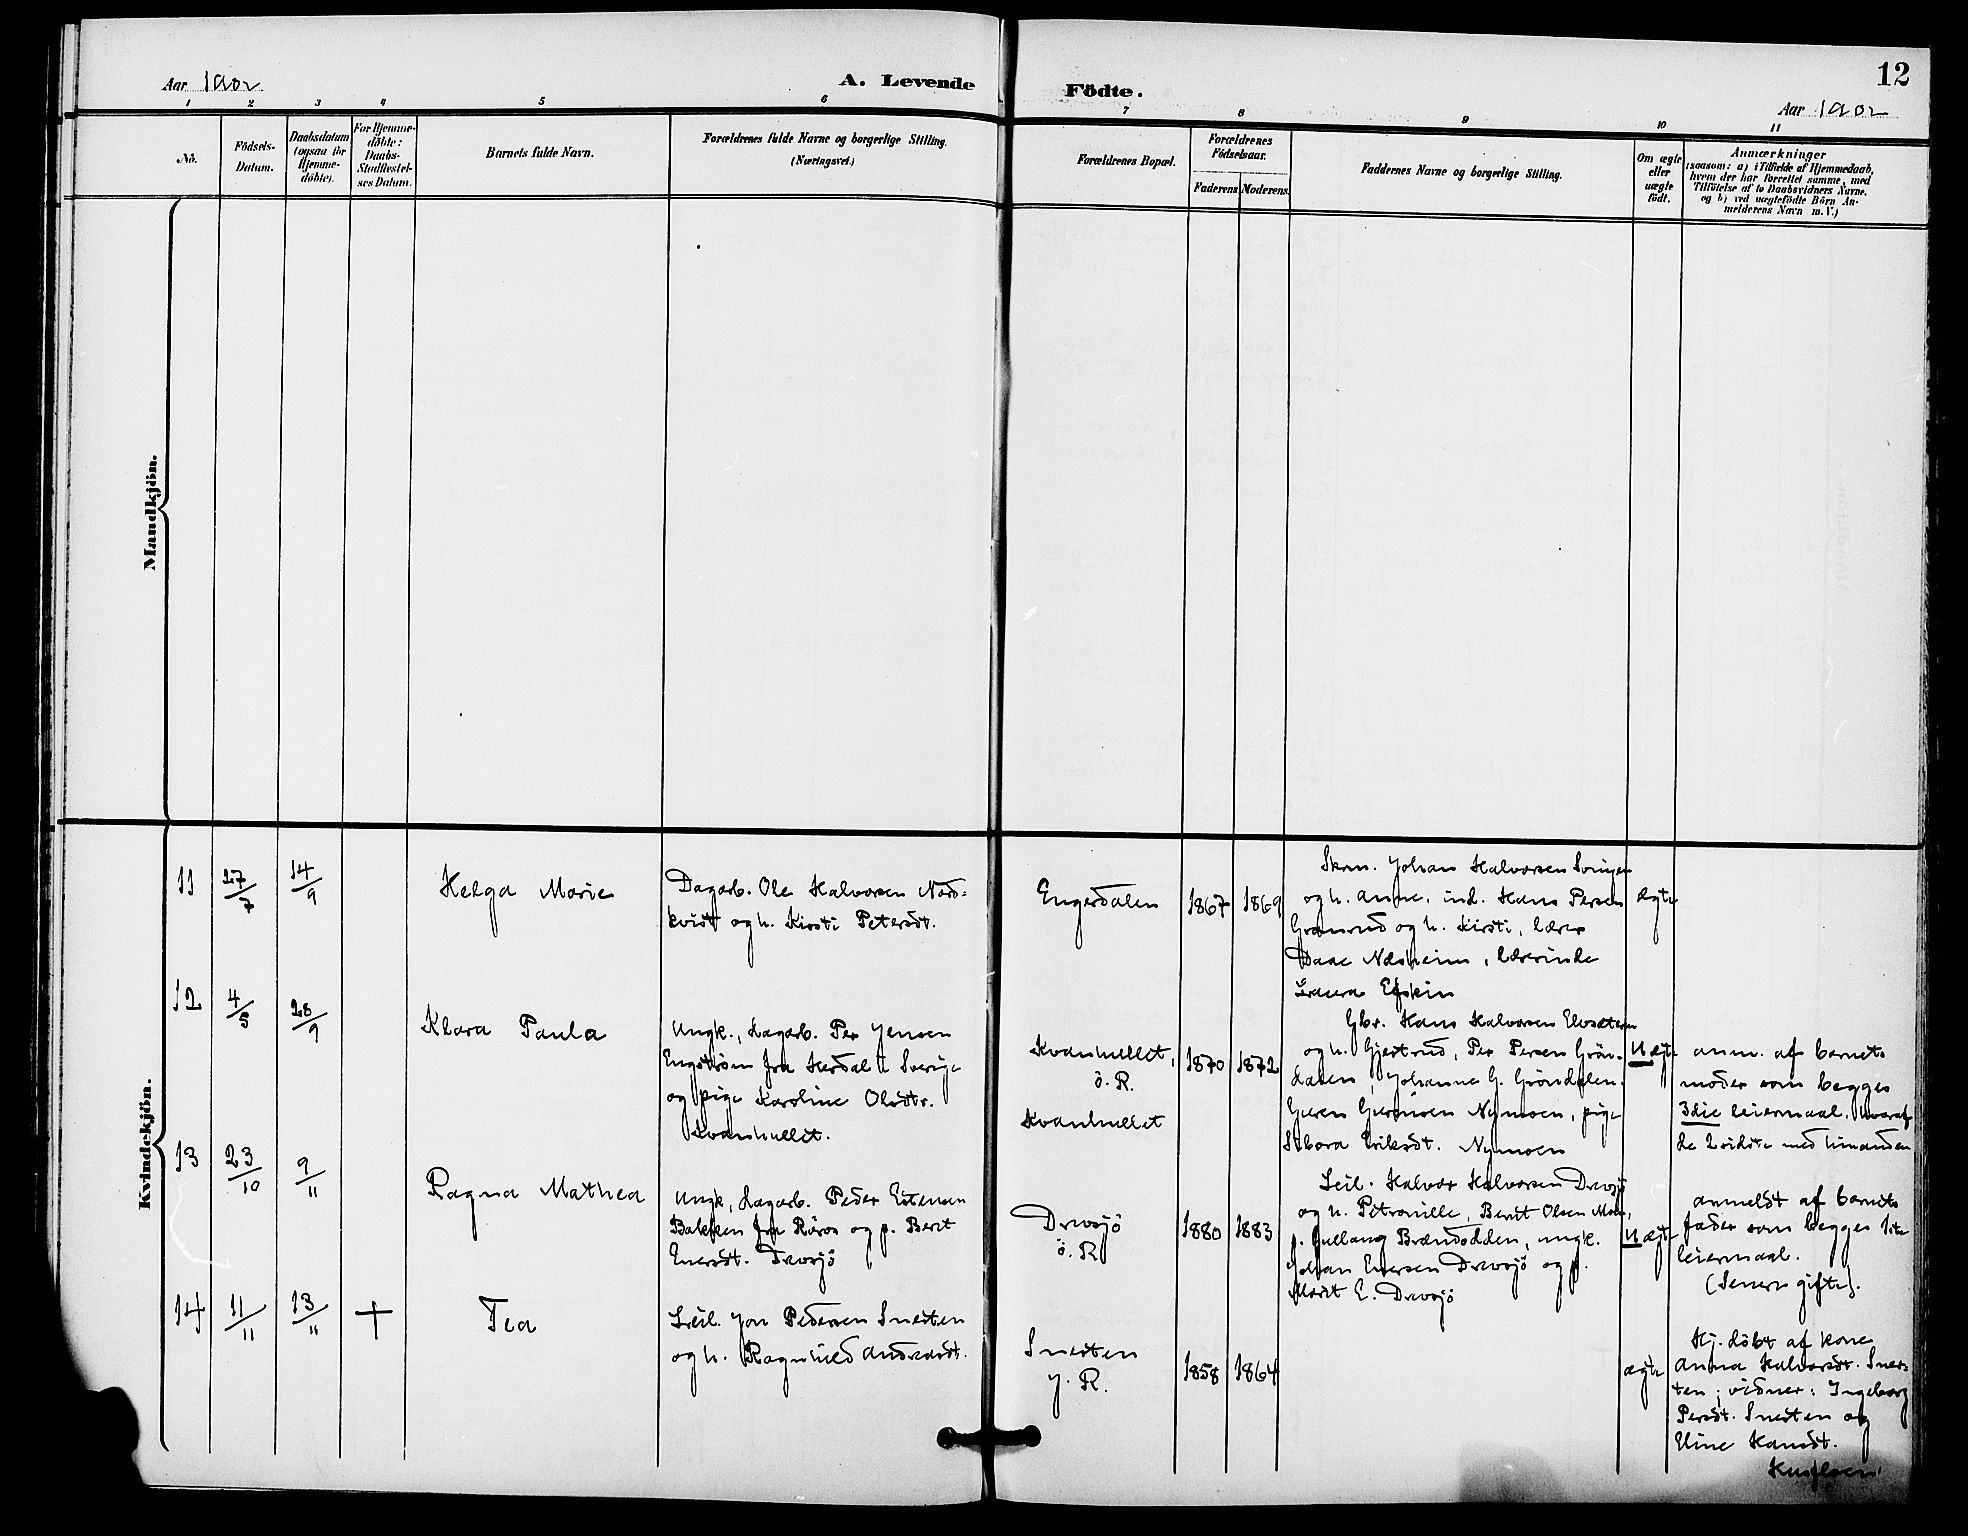 Aar 1902
A. Levende
Födte.
12
Aar 1902
1 2 3 4 5 6 7 8 9 10 11
No.
Födsels-
Datum.
Daabsdatum
(ogsaa for
Hjemme-
döbte).
For Hjemme-
döbte:
Daabs-
Stadfæstel-
ses Datum.
Barnets fulde Navn.
Forældrenes fulde Navne og borgerlige Stilling.
(Næringsvei.)
Forældrenes Bopæl.
Forældrenes
Födselsaar.
Faderens
Moderens.
Faddernes Navne og borgerlige Stilling.
Om ægte
eller
uægte
födt.
Anmærkninger
(saasom: a) i Tilfælde af Hjemmedaab,
hvem der har forrettet samme, med
Tilföielse af to Daabsvidners Navne,
og b) ved uægtefödte Börn An-
melderens Navn m. V.)
Mandkjön.
Kvindekjön.
11
27/7
14/9
Helga Marie
Dagarb. Ole Halvorsen Nord-
kvist og h. Kirsti Petersdt.
Engerdalen
1867
1869
Skrm. Johan Halvorsen
og h. Anne, ind. Hans Persen
Granrud og h. Kirsti, lærer
Daae Næsheim, lærerinde
Laura
ægte
12
4/5
28/9
Klara Paula
Ungk., dagarb. Per Jensen
Engström fra Herdal i Sverige
og pige Karoline Olsdtr.
Kvanhullet.
Kvanhullet,
ö. R.
Kvanhullet
1870
1872
Gbr. Hans Halvorsen
og h. Gjertrud, Per Persen Grön-
dalen, Johanne G. Gröndalen.
Nymoen, pige
Eriksdt. Nymoen
Uægte
anm. af barnets
moder som begges
3die leiermaal, hvoraf
de 2 sidste med hinanden
13
23/10
9/11
Ragna Mathea
Ungk., dagarb. Peder Estensen
Bakken fra Röros og p. Berit
Enersdt. Drevsjö
Drevsjö
ö. R.
1880
1883
Leil. Halvor Halvorsen Drevsjö
og h. Petronille, Berit Olsen
p. Gullaug Brændodden, ungk.
Johan Enersen Drevsjö og p.
Marit E. Drevsjö
Uægte
anmeldt af barnets
fader som begges 1ste
leiermaal.
(Senere gifte).
14
11/11
13/11
+
Tea
Leil. Jon Pedersen Snerten
og h. Ragnhild Andreasdt.
Snerten
y. R.
1858
1864
ægte
Hj. döbt af kone
Anna Halvorsdt. Sner-
ten; vidner: Ingeborg
Persdt. Snerten og
Eline Hansdt.